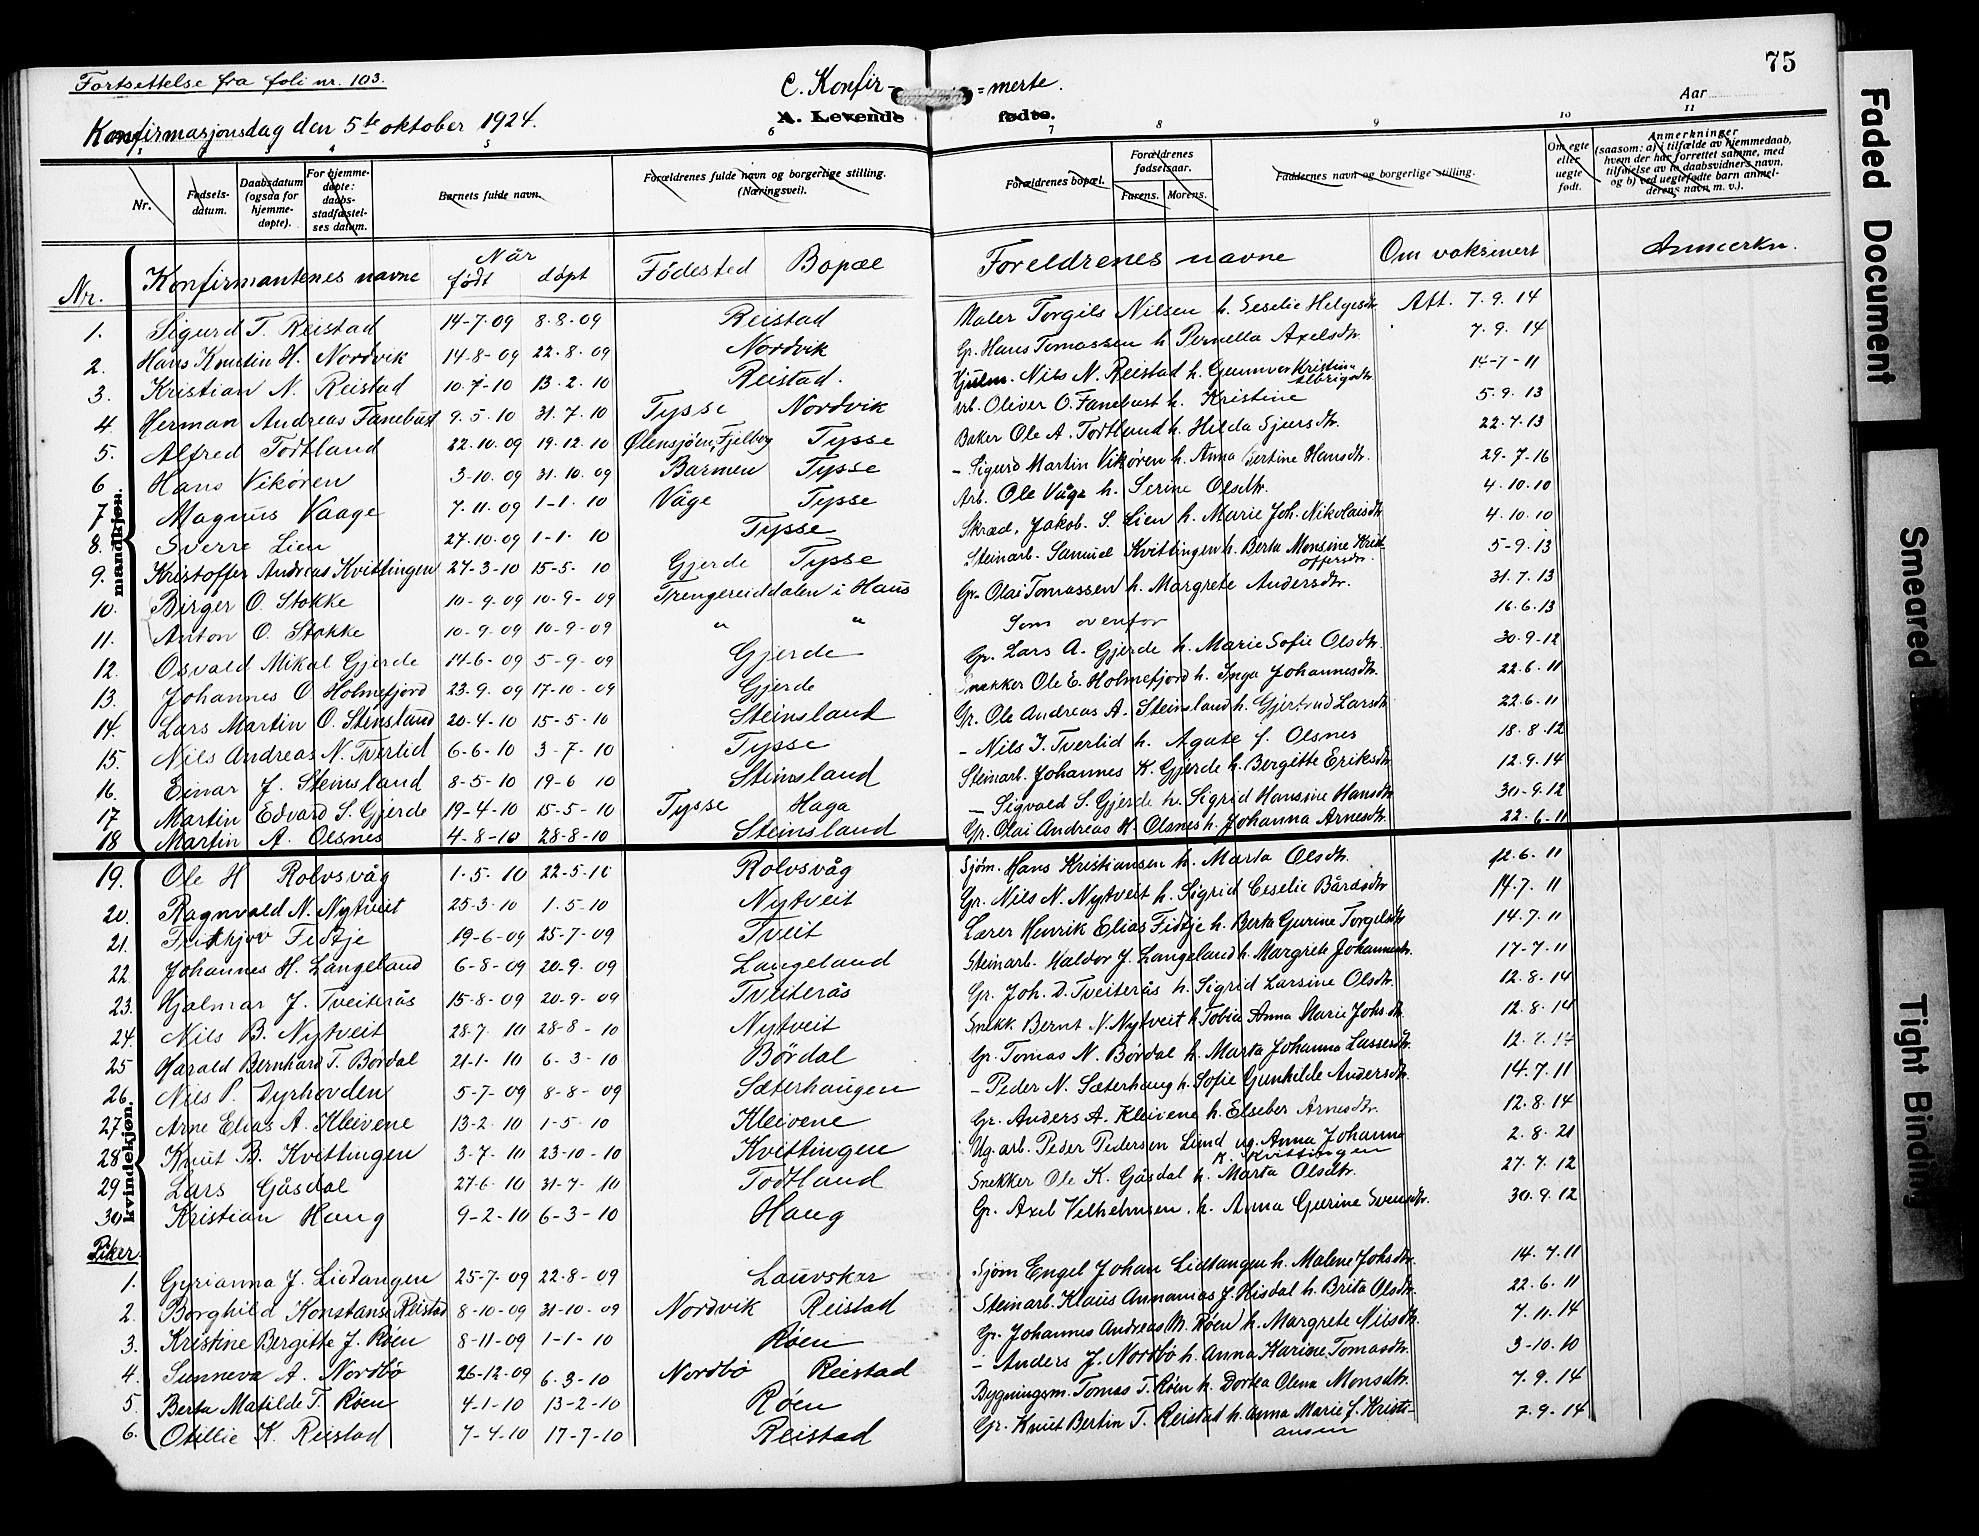 75
Fortsettelse fra foli nr. 103.
C. Konfir- =merte.
Aar
Konfirmasjonsdag den 5te oktober 1924.
A. Levende fødte.
1 2 3 4 5 6 7 8 9 10 11
Nr. Fødsels-datum. Daabsdatum (ogsaa for hjemme-døpte). For hjemme-døpte: daabs-stadfæstel-ses datum. Barnets fulde navn. Forældrenes fulde navn og borgerlige stilling. (Næringsvei). Forældrenes bopæl. Forældrenes fødselsaar. Farens. Morens. Faddernes navn og borgerlige stilling. Om egte eller uegte født. Anmerkninger (saasom: a) i tilfælde av hjemmedaab, hvem der har forrettet samme, med tilføielse av to daabsvidners navn, og b) ved uegtefødte barn anmel-derens navn m. v.).
Nr. Konfirmantenes navne Når født døpt Fødested Bopæl Foreldrenes navne Om vaksinert Anmerkn.
mandkjøn.
1. Sigurd T. Reistad 14-7-09 8-8-09 Reistad Maler Torgils Nilsen h. Seselie Helgesdtr. Att. 7.9.14
2. Hans Knutin H. Nordvik 14-8-09 22.8.09 Nordvik Gr. Hans Tomassen h. Pernella Axelsdtr. 7.9.14
3. Kristian N. Reistad 10.7-10 13.2.10 Reistad. Hjulm. Nils N. Reistad h. Gunnvor Kristine Albrigsdtr. 14-7-11
4. Herman Andreas Fanebust 9.5.10 31.7.10 Tysse Nordvik Arb. Oliver O. Fanebust h. Kristine 5.9.13
5. Alfred Todtland 22.10.09 19.12.10 Ølensjøen, Fjelberg Tysse Baker Ole A. Todtland h. Hilda Sjursdtr. 22.7.13
6 Hans Vikøren 3-10.09 31.10.09 Barmen Tysse - Sigurd Martin Vikøren h. Anna Bertine Hansdtr. 29-7-16
7 Magnus Vaage 7.11.09 1-1.10 Våge Tysse Arb. Ole Våge h. Serine Olsdtr. 4.10.10
8. Sverre Lien 27.10.09 1-1.10 Tysse Skræd. Jakob. S. Lien h. Marie Joh. Nikolaisdtr 4.10.10
9. Kristoffer Andreas Kvittingen 27-3-10 15-5.10 Gjerde Tysse Steinarb. Samuel Kvittingen h. Berta Monsine Kristoffersdtr. 5-9.13
10. Birger O. Stokke 10-9.09 10-9-09 Trengereiddalen i Haus Gr. Olai Tomassen h. Margrete Andersdtr. 31.7.13
11. Anton O. Stokke 10-9.09 10-9-09 " " Som ovenfor 16.6.13
12. Osvald Mikal Gjerde 14-6-09 5-9-09 Gjerde Gr. Lars A. Gjerde h. Marie Sofie Olsdtr. 30.9-12
13. Johannes O Holmefjord 23.9.09 17-10-09 Gjerde Snekker Ole E. Holmefjord h. Inga Johannesdtr. 22.6.11
14. Lars Martin O. Steinsland 20-4-10 15-5-10 Steinsland Gr. Ole Andreas A. Steinsland h. Gjertrud Larsdtr 22.6.11
15. Nils Andreas N. Tverlid 6-6-10 3-7-10 Tysse - Nils J. Tverlid h. Agate f. Olsnes 18.8.12
16. Einar J. Steinsland 8-5-10 19-6 10 Steinsland Steinarb. Johannes K. Gjerde h. Bergitte Eriksdtr 12.9.14
17 Martin Edvard S. Gjerde 19-4-10 15-5-10 Tysse Haga - Sigvald S. Gjerde h. Sigrid Hansine Hansdtr 30-9.12
18 Martin A. Olsnes 4-8-10 28-8-10 Steinsland Gr. Olai Andreas H. Olsnes h. Johanna Arnesdtr. 22-6-11
kvindekjøn.
19. Ole H Rolvsvåg 1-5.10 22-5-10 Rolvsvåg Sjøm. Hans Kristiansen h. Marta Olsdtr. 12.6.11
20. Ragnvald N. Nytveit 25-3.10 1.5-10 Nytveit Gr. Nils N. Nytveit h. Sigrid Ceselie Bårdsdtr 14.7.11
21. Fritkjov Fidtje 19-6-09 25-7-09 Tveit Lærer Henrik Elias Fidtje h. Berta Gurine Torgelsdtr 14.7.11
22. Johannes H. Langeland 6-8-09 20-9.09 Langeland Steinarb. Haldor J. Langeland h. Margrete Johannesdtr. 17-7-11
23. Hjalmar J. Tveiterås 15-8-09 20-9-09 Tveiterås Gr. Joh. D. Tveiterås h. Sigrid Larsine Olsdtr. 12.8.14
24. Nils B. Nytveit 28.7.10 28-8-10 Nytveit Snekk. Bernt N. Nytveit h. Tobia Anna Marie Johs.dtr. 12.8.14
25 Harald Bernhard T. Børdal 21-1-10 6-3-10 Børdal Gr. Tomas N. Børdal h. Marta Johanna Lassesdtr.
26. Nils P. Dyrhovden 5-7-09 8-8-09 Sæterhaugen - Peder N. Sæterhaug h. Sofie Gunhilde Andersdtr. 14.7.11
27 Arne Elias A. Kleivene 13-2.10 1-5.10 Kleivene Gr. Anders A. Kleivene h. Elseber Arnesdtr. 12.8.14
28 Knut B. Kvittingen 3-7.10 23-10-10 Kvittingen Ug. arb. Peder Pedersen Lund ug. Anna Johanna K. Kvittingen 2.8.21
29 Lars Gåsdal 27-6.10 31-7-10 Todtland Snekker Ole K. Gåsdal h. Marta Olsdtr. 27.7.12
30 Kristian Haug 9-2-10 6-3-10 Haug Gr. Axel Vilhelmsen. h. Anna Gurine Svensdtr. 30.9.12
Piker.
1. Gyrianna J. Lidtangen 25-7.09 22.8-09 Lauvskar Sjøm Engel Johan Lidtangen h. Malene Johsdtr. 14.7.11
2. Borghild Konstanse Reistad 8-10-09 31-10-09 Nordvik Reistad Steinarb. Klaus Annanias J. Hisdal h. Brita Olsdtr. 22.6.11
3. Kristine Bergitte J. Røen 8-11-09 1-1-10 Røen Gr. Johannes Andreas M. Røen h. Margrete Nilsdtr. 7.11.14
4. Sunneva A. Nordbø 26-12-09 6.3-10 Nordbø Reistad - Anders J. Nordbø h. Anna Karine Tomasdtr. 3-10.10
5. Berta Matilde T. Røen 4-1-10 13-2-10 Røen Bygningsm. Tomas T. Røen h. Dortea Olena Monsdtr. 7.9.14
6. Otillie K. Reistad 7-4.10 17-7-10 Reistad Gr. Knut Bertin T. Reistad h. Anna Marie f. Kristi-ansen 7-9-14
Faded Document
Smeared
Tight Binding